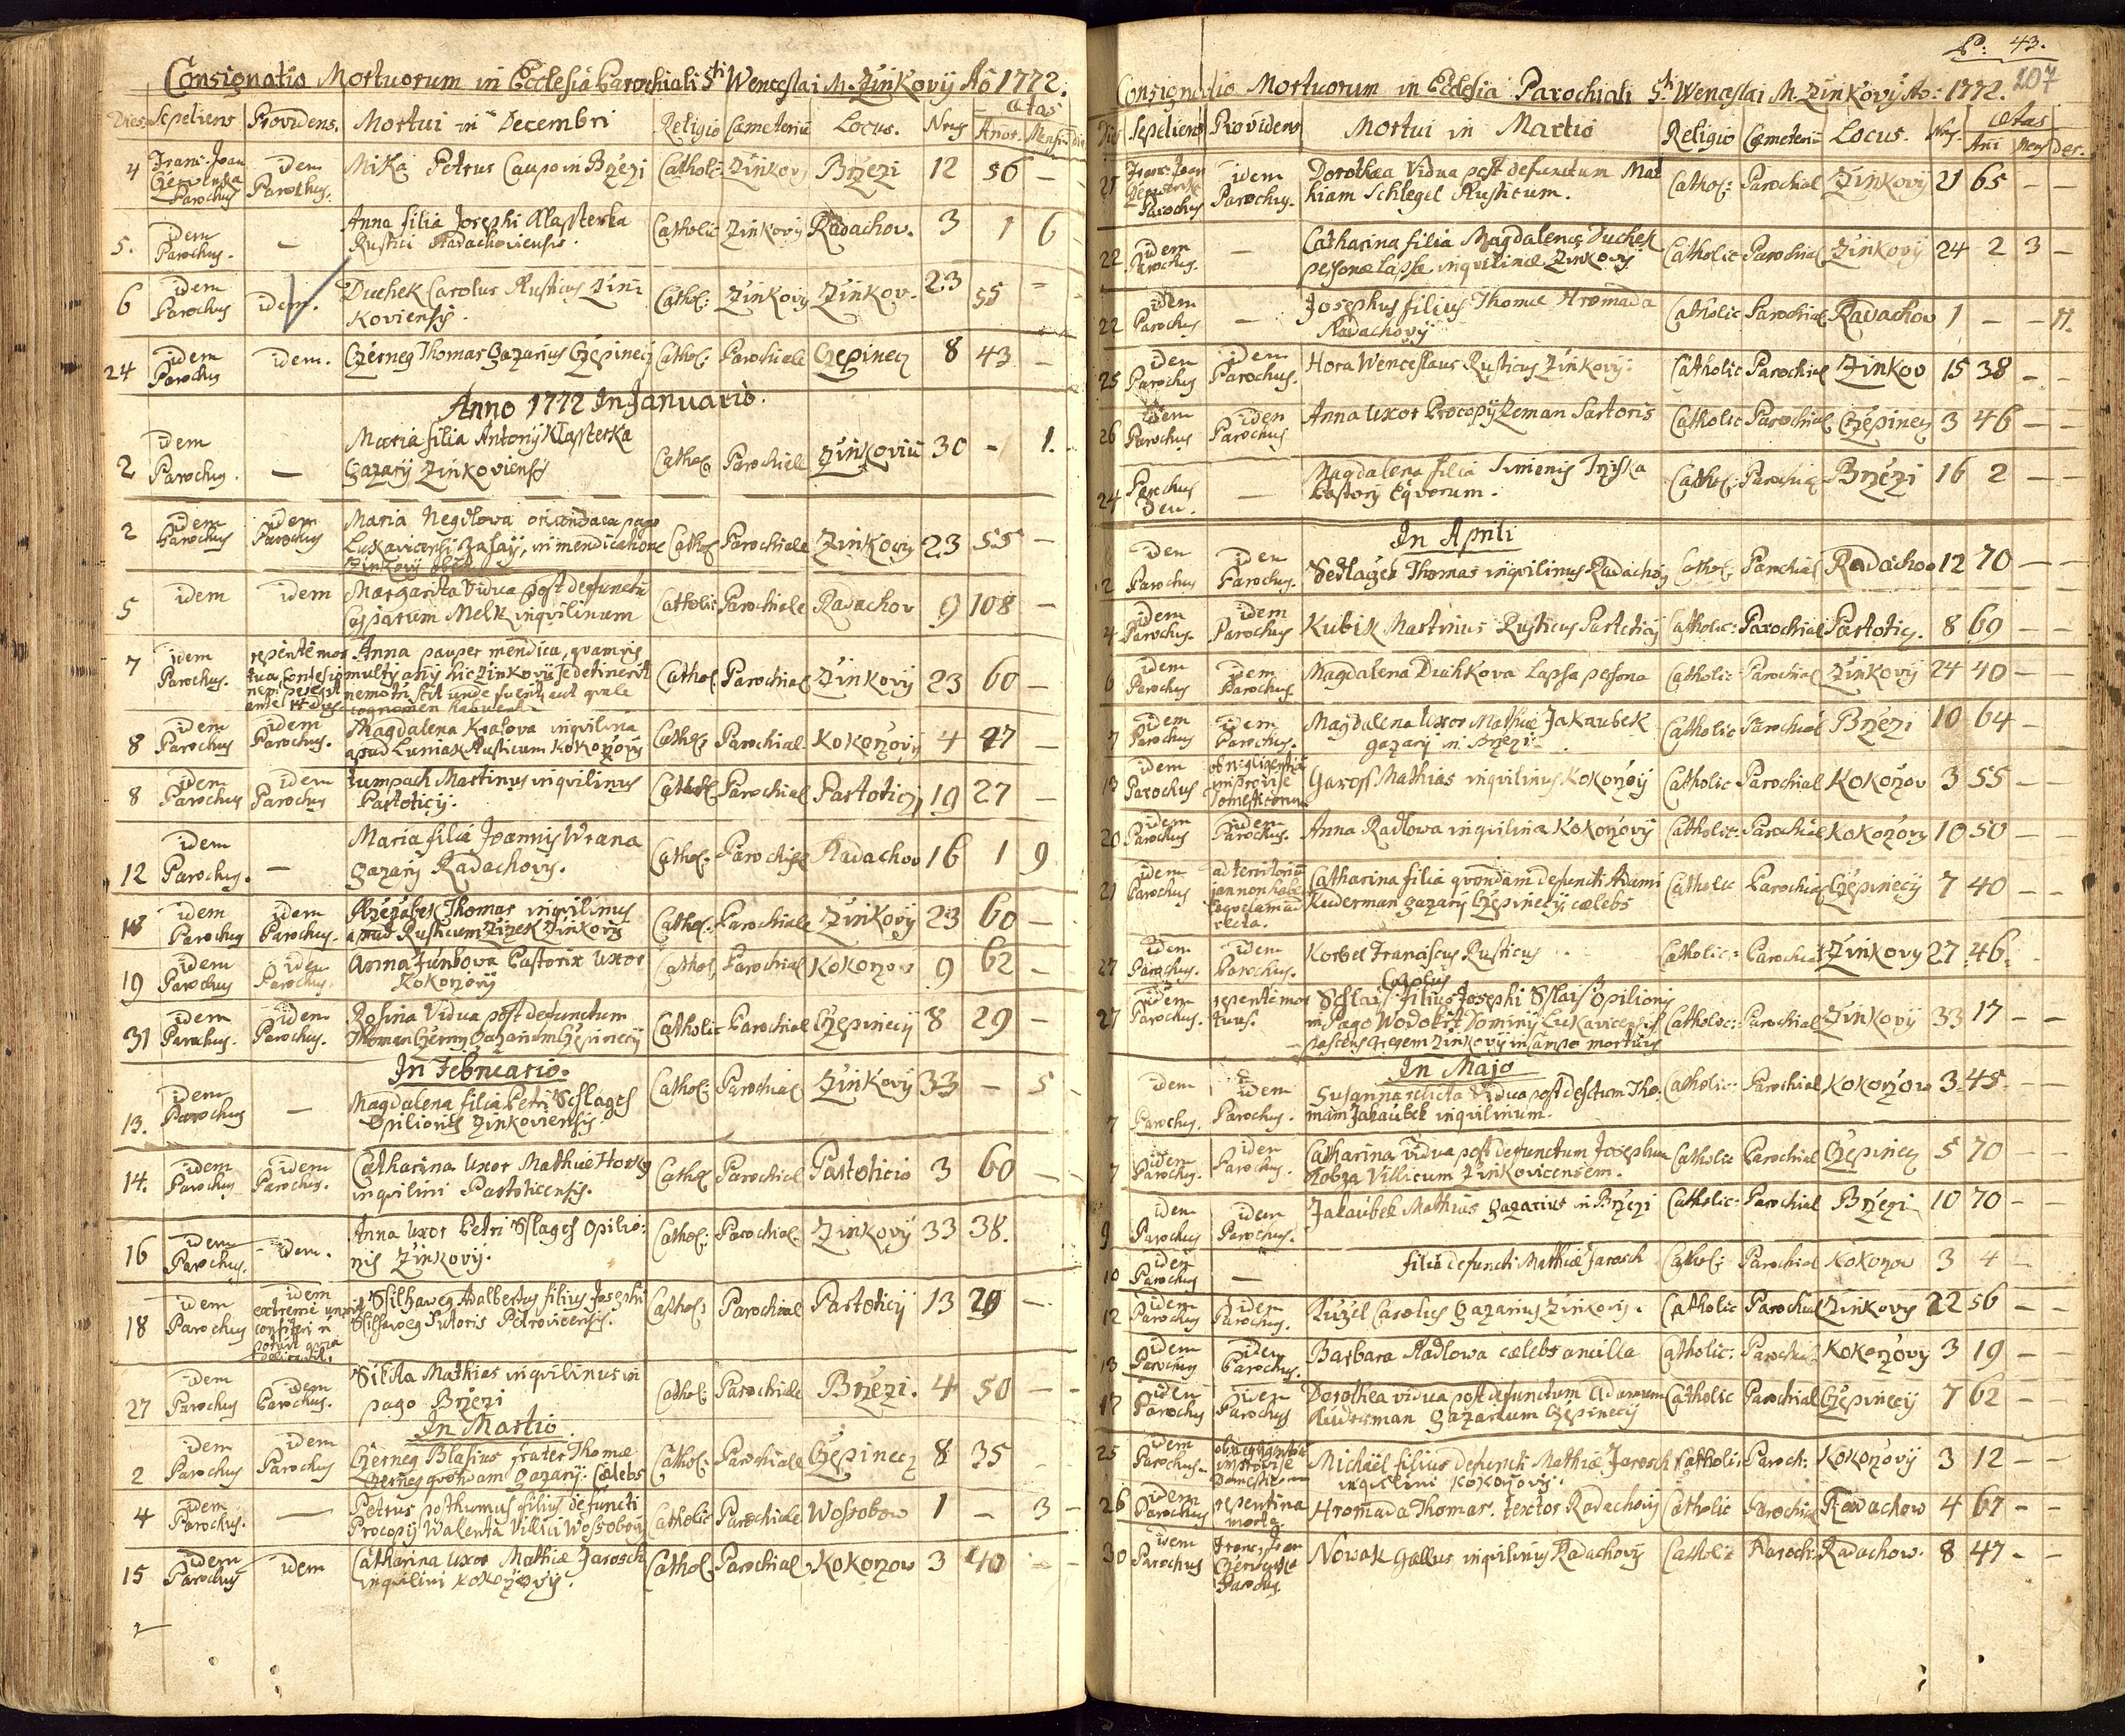 Consignatio Mortuorum in Ecclesia Parochiali Sti Wenceslai M. Zinkovij Ao 1772.
Dies Sepeliens Providens. Mortui in Decembri Religio Cæmeteriũ Locus. Nrus Ætas
Anor. Mens.
4 Franc. Joan Czerwenka Parochus idem Parochus. Mika Petrus Caupo in Brzezi Cathol: Zinkov Brzezi 12 56 –
5. idem Parochus. – Anna filia Josephi Klasterka
Rustici Radachoviensis. Catholic Zinkovij Radachov. 3 1 6
6 idem Parochus idem. Duchek Carolus Rusticus Zin
koviensis. Cathol: Zinkovij Zinkov. 23 55 –
24 idem Parochus idem. Czerneg Thomas Gazarius Czepinecz Cathol: Parochiale Czepinecz 8 43 –
Anno 1772 In Januario.
2 idem Parochus. – Maria filia Antonij Klasterka
Gazarij Zinkoviensis Cathol Parochiale Zinkoviũ 30 – 1.
2 idem Parochus idem Parochus Maria Negdlova oriunda ex pago
Lukavicensi, in mendicatione
Zinkovij obiit Cathol Parochiale Zinkovij 23 55 –
5 idem idem Margarita Vidua post defunctũ
Casparum Melk inquilinum Catholic Parochiale Radachov 9 108 –
7 idem Parochus. repentè mor
tua, Anna pauper mendica, quamvis
multis annis hic Zinkovij se detinerit
nemo scit unde fuerit, aut quale
cognomen habuerit. Cathol. Parochial Zinkovij 23 60 –
8 idem Parochus idem Parochus. Magdalena Kralova inquilina
apud Rusticum Kokorzovij Cathol: Parochial. Kokorzovij 4 47 –
8 idem Parochus idem Parochus Zumpach Martinus inquilinus
Partoticij. Cathol Parochial Partoticij 19 27 –
12 idem Parochus. – Maria filia Joannis Wrana
Gazarij Radachovij. Cathol: Parochial Radachov 16 1 9
18 idem Parochus idem Parochus. Rzezabek Thomas inquilinus
apud Rusticum Zizek Zinkovij Cathol. Parochiale Zinkovij 23 60 –
19 idem Parochus idem Parochus. Anna Pastoris uxor
Kokorzovij Cathol Parochial Kokorzov 9 62 –
31 idem Parochus. idem Parochus. Rosina Vidua post defunctum
Thomam Czerny Gazarium Czepinecij Catholic Parochial Czepinecij 8 29 –
In Februario.
13. idem Parochus – Magdalena filia Petri Sslages
Opilionis Zinkoviensis. Cathol: Parochial Zinkovij 33 – 5
14. idem Parochus idem Parochus. Catharina Uxor Mathiæ Horky
inquilini Partoticensis. Cathol Parochial Partoticio 3 60 –
16 idem Parochus. – idem. Anna Uxor Petri Sslages Opilio:
nis Zinkovij. Cathol: Parochial. Zinkovij 33 38.
18 idem Parochus idem
extremè unxit
confiteri n
potuit quia
Adalbertus filius Josephi
Sutoris Petrovicensis. Cathol: Parochial Partoticij 13 29 –
27 idem Parochus idem Parochus. Sikita Mathias inquilinus in
pago Brzezi Cathol: Parochiale Brzezi. 4 50 –
In Martio
2 idem Parochus idem Parochus Czerneg Blasius frater Thomæ
Czerneg quondam Gazarij: Cælebs Cathol: Parochiale Czepinecz 8 35
4 idem Parochus. – Petrus posthumus filius defuncti
Procopij Walenta Villici Wossobovij Catholic Parochiale Wossobow 1 – 3 –
15 idem Parochus idem Catharina Uxor Mathiæ Jarosch
inquilini Kokorzovij. Cathol. Parochial Kokorzow 3 40 –
P: 43.
107
Consignatio Mortuorum in Ecclesia Parochiali Sti Wenceslai M. Zinkovij Ao: 1772.
Dies Sepeliens Providens Mortui in Martio Religio Cæmeteriũ Locus. Nrs. Ætas
Ani Mens Dies.
21 Franc. Joan Czerwenka Parochus idem Parochus. Dorothæa Vidua post defunctum Mat
hiam Schlegel Rusticum. Cathol: Parochial Zinkovij 21 65 – –
22 idem Parochus. – Catharina filia Magdalenæ Duchek
personæ lapsæ inquilinæ Zinkovij Catholic Parochial Zinkovij 24 2 3 –
22 idem Parochus – Josephus filius Thomæ Hromada
Radachovij Catholic Parochial Radachov 1 – – 11.
25 idem Parochus idem Parochus. Hora Wenceslaus Rusticus Zinkovij. Catholic Parochial Zinkov 15 38 – –
26 idem Parochus idem Parochus Anna Uxor Procopij Zeman Sartoris Catholic Parochial Czepinecz 3 46 – –
24 Parochus – Magdalena filia Simonis
Pastoris Equorum. Cathol: Parochial Brzezi 16 2 – –
In Aprili
2 idem Parochus idem Parochus. Sedlaczek Thomas inquilinus Radachov Cathol: Parochial Radachov 12 70 – –
4 idem Parochus. idem Parochus Kubik Martinus Rusticus Partoticij Catholic: Parochial Partoticij. 8 69 – –
6 idem Parochus idem Parochus Magdalena Duchkova Lapsa persona Catholic Parochial Zinkovij 24 40 – –
7 idem Parochus idem Parochus. Magdalena Uxor Mathiæ Jakaubek
gazarij in Brzezi Catholic Parochial Brzezi 10 64 –
13 idem Parochus ob negligentiã
improvise
Domesticorum Garoß Mathias inquilinus Kokorzovij Catholic Parochial Kokorzov 3 55 – –
20 idem Parochus idem Parochus. Anna Radlowa inquilina Kokorzovij Catholic: Parochial Kokorzovij 10 50 – –
21 idem Parochus Catharina filia quondam defuncti Adami
Kuderman gazarij Czepinecij, cælebs Catholic Parochial Czepinecij 7 40 – –
27 idem Parochus. idem Parochus. Korbel Franciscus Rusticus Catholic: Parochial Zinkovy 27 46.
27 idem Parochus. repentè mor
tuus. Carolus
Sslais filius Josephi Sslais Opilionis
in Pago Wodokrt Dominij Lukavicensis
pascens gregem Zinkovij in campo mortuus Catholic: Parochial Zinkovij 33 17 – –
In Majo
7 idem Parochus. idem Parochus. Susanna relicta Vidua post defctum Tho:
mam Jakaubek inquilinum. Catholic: Parochial Kokorzow 3 45 – –
7 idem Parochus. idem Parochus. Catharina vidua post defunctum Josephum
Kobza Villicum Zinkovicensem. Catholic Parochial Czepinecz 5 70 –
9 idem Parochus idem Parochus. Jakaubek Mathias Gazarius in Brzezi Catholic: Parochial Brzezi 10 70 –
10 idem Parochus – filia defuncti Mathiæ Jarosch Cathol: Parochial Kokorzow 3 4 –
12 idem Parochus idem Parochus. Kuzel Carolus gazarius Zinkovij. Catholic Parochial Zinkovy 22 56 – –
13 idem Parochus idem Parochus. Barbara Radlowa cælebs ancilla Catholic: Parochial Kokorzovy 3 19 – –
17 idem Parochus idem Parochus Dorothea vidua post defunctum Adamum
Kuderman gazarium Czepinecij Catholic Parochial Czepinecij 7 62 – –
25 idem Parochus. ob negligentiã
improvise
Domesticorum Michaël filius defuncti Mathiæ Jarosch
inquilini Kokorzovij. Catholic Paroch: Kokorzovij 3 12 – –
26 idem Parochus repentina
morte Hromada Thomas. textor Radachovij Catholic Parochial Radachow 4 67 – –
30 idem Parochus Franc: Joan
Czerwenka
Parochus Nowak Gallus inquilinus Radachovij Catholic Parochi: Radachow. 8 47 – –